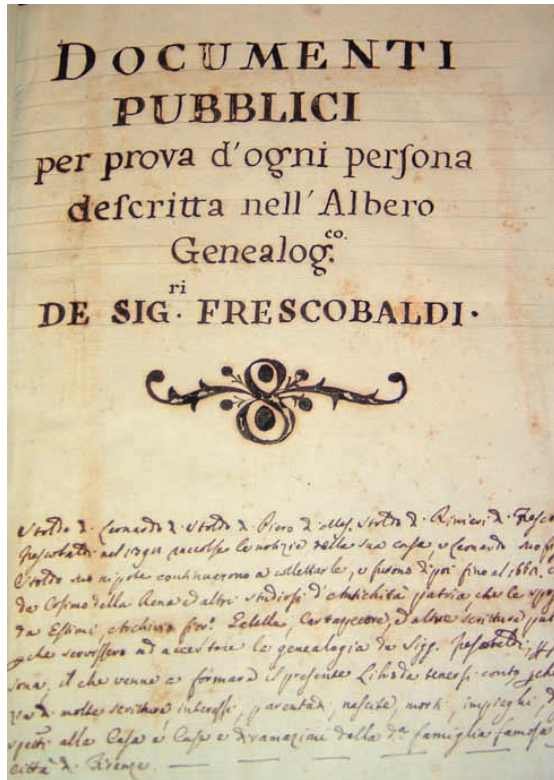 DOCUMENTI
PUBBLICI
per prova d'ogni perſona
deſcritta nell'Albero
Genealog.co
DE SIG.ri FRESCOBALDI.
Stoldo di Leonardo di Stoldo di Piero di Mess. Stoldo di Rinieri di
Frescobaldi nel raccolse le notizie della sua casa, e Leonardo suo
Stoldo suo nipote continuarono a collettarle, e furono dipoi fino al
da Cosimo della Rena ed altri studiosi d'Antichità patria, che le
da Estimi, Archivio Decla, Cartapecore, ed altre scritture
che servissero ad accertare la genealogia de Sigg. Frescobaldi
il che venne a formare il presente Libro da tenersi conto
di molte scritture interessi, parentadi, nascite, morti, impieghi,
alla Casa e Case e diramazioni della d.a famiglia famosa
città di Firenze.